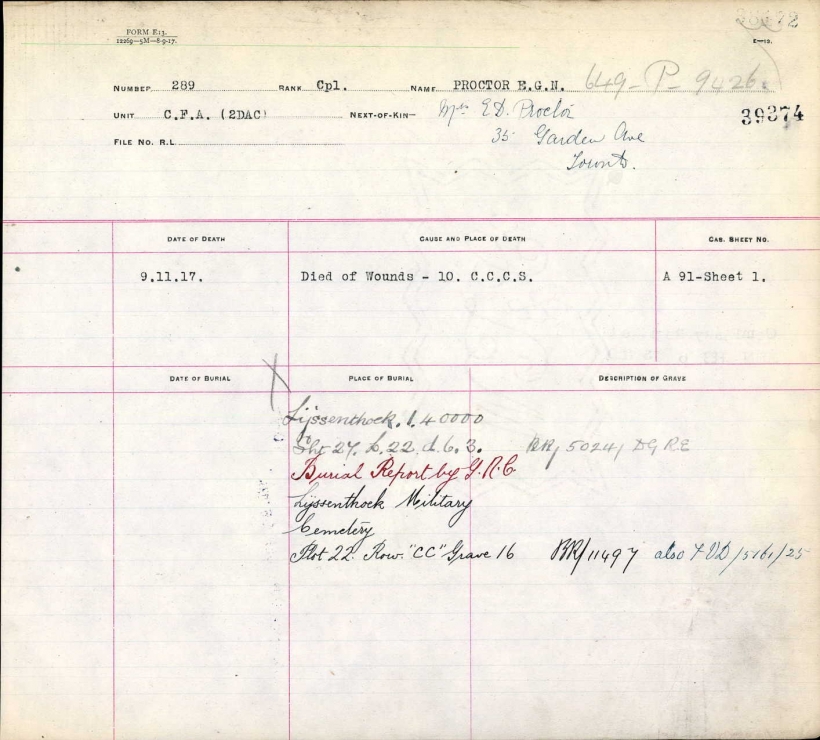 FORM E13.
12269—5M—8-9-17.
E—12.
NUMBER 289 RANK Cpl. NAME PROCTOR E.G.N. 649-P-9426.
UNIT C.F.A. (2DAC) NEXT-OF-KIN— Mrs E.D. Proctor 39374
35 Garden Ave
FILE NO. R.L.
Toronto.
DATE OF DEATH CAUSE AND PLACE OF DEATH CAS. SHEET NO.
9.11.17. Died of Wounds - 10. C.C.C.S. A 91-Sheet 1.
DATE OF BURIAL PLACE OF BURIAL DESCRIPTION OF GRAVE
Lijssenthoek. 1.40000
Sht 27. L.22.d.6.3. BR/5024/ DGRE
Burial Report by G.R.C
Lijssenthock Military
Cemetery
Plot 22. Row. "CC" Grave 16 BR/11497 also FVD/5161/25